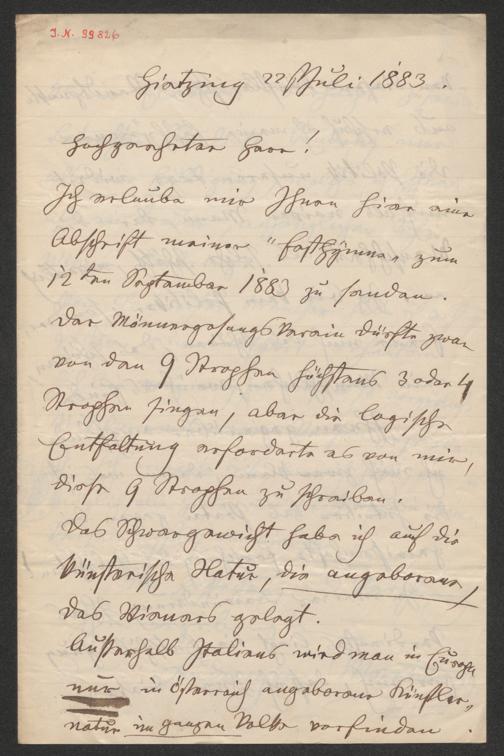 I.N. 99826
Hietzing 22 Juli 1883.
Hochgeehrter Herr!
Ich erlaube mir Ihnen hier eine
Abschrift meiner "Festhymne" zum
12ten September 1883 zu senden.
Der Männergesangsverein dürfte zwar
von den 9 Strophen höchstens 3 oder 4
Strophen singen, aber die logische
Entfaltung erforderte es von mir,
diese 9 Strophen zu schreiben.
Das Schwergewicht habe ich auf die
künstlerische Natur, die angeborene,
des Wieners gelegt.
Außerhalb Italiens wird man in Europa
nur in Österreich angeborene Künstler-
natur im ganzen Volke vorfinden.